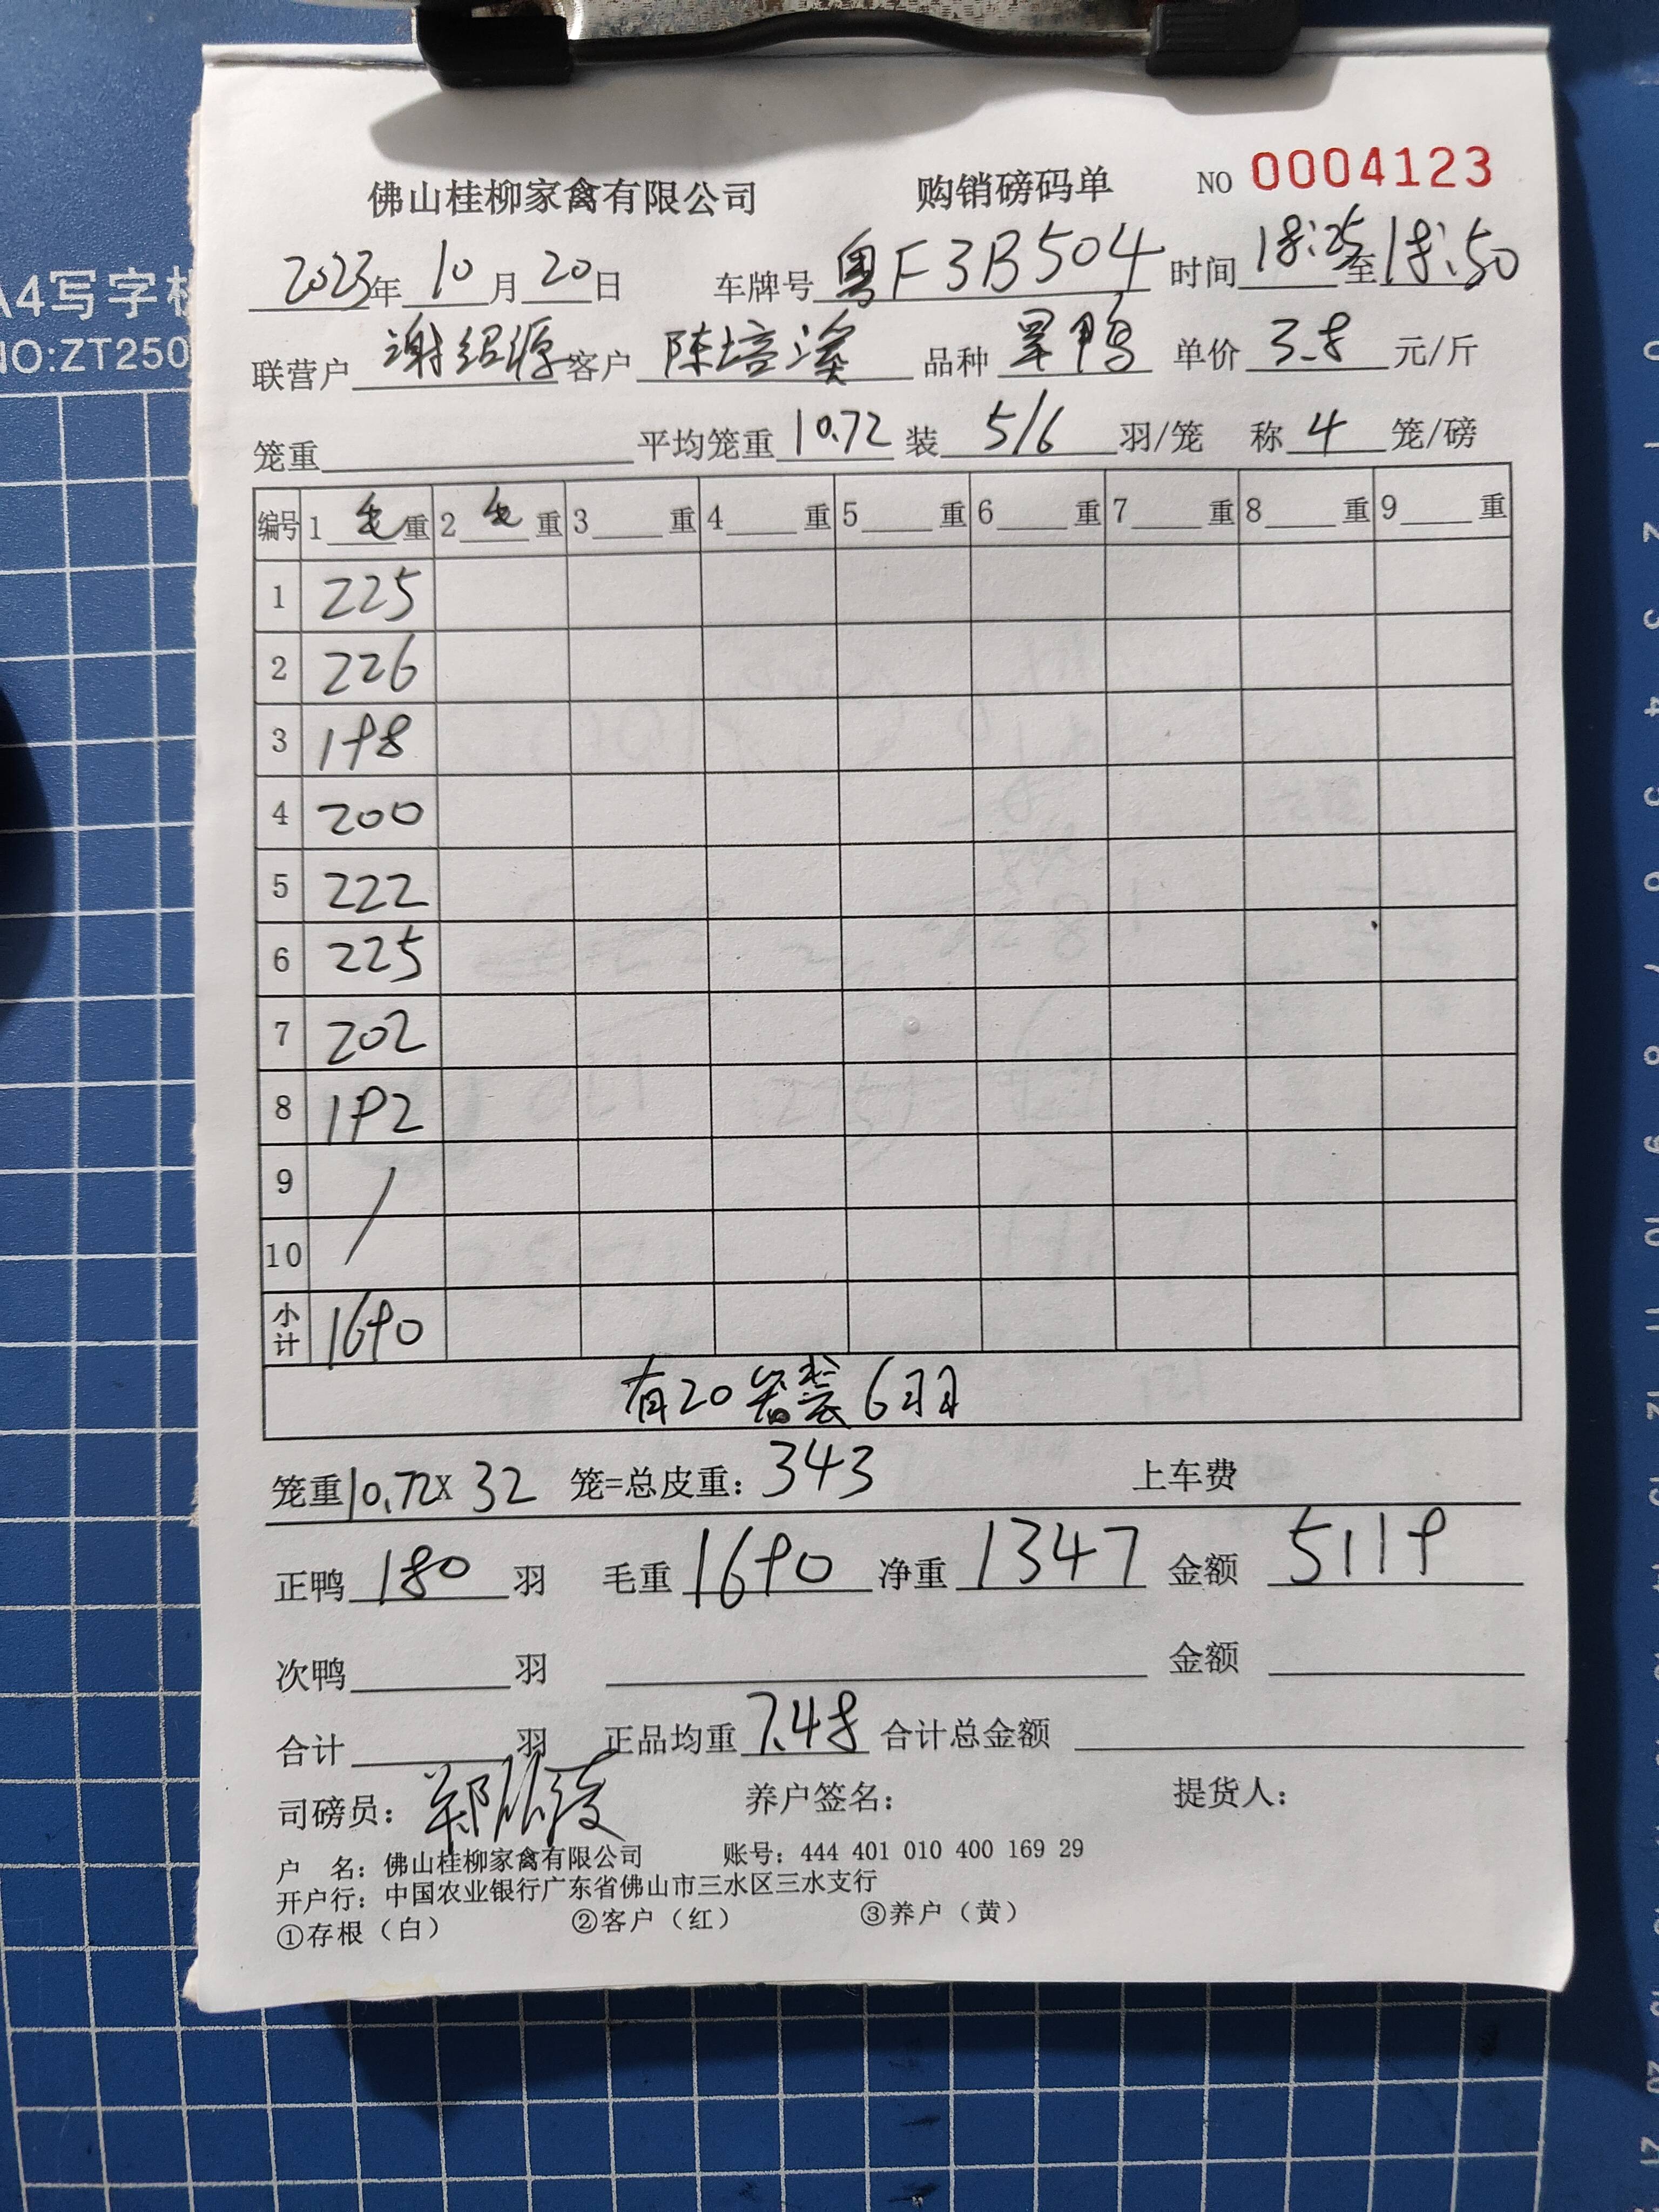 A4写字
NO:ZT250
佛山桂柳家禽有限公司 购销磅码单 NO 0004123
2023年 10月 20日 车牌号 粤F3B504 时间 18:25 至 18:50
联营户 谢绍源 客户 陈培 品种 鸭 单价 3.8 元/斤
笼重 平均笼重 10.72 装 5/6 羽/笼 称 4 笼/磅
编号 1 毛 重 2 毛 重 3 重 4 重 5 重 6 重 7 重 8 重 9 重
1 225
2 226
3 198
4 200
5 222
6 225
7 202
8 192
9 /
10
小计 1690
有20笼装6羽
笼重10.72X 32 笼=总皮重: 343 上车费
正鸭 180 羽 毛重 1690 净重 1347 金额 5119
次鸭 羽 金额
合计 羽 正品均重 7.48 合计总金额
司磅员: 郑 养户签名: 提货人:
户 名: 佛山桂柳家禽有限公司 账号: 444 401 010 400 169 29
开户行: 中国农业银行广东省佛山市三水区三水支行
①存根（白） ②客户（红） ③养户（黄）
0
1
2
3
4
5
6
7
8
9
10
11
12
13